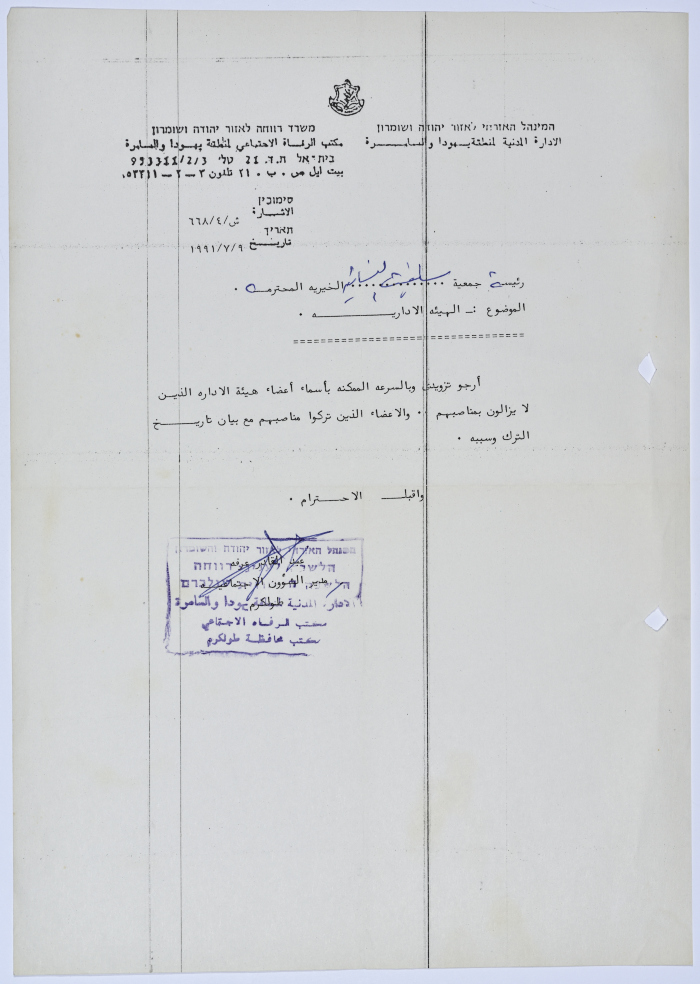 המינהל האזרחי לאזור יהודה ושומרון
الادارة المدنية لمنطقة يهودا والسامرة
משרד רווחה לאזור יהודה ושומרון
مكتب الرفاة الاجتماعي لمنطقة يهودا والسامرة
בית-אל ת.ד. 21 טל׳ 993311/2/3
بيت ايل ص . ب . ٢١ تلفون ٣ – ٢ – ٥٣٢١١.
סימוכין
الاشارة ش/٤/٦٦٨
תאריך
تاريخ ١٩٩١/٧/٩
رئيسة جمعية الخيريه المحترمه .
الموضوع :ـ الهيئه الاداريه .
أرجو تزويدي وبالسرعه الممكنه بأسماء أعضاء هيئة الاداره الذين
لا يزالون بمناصبهم .. والاعضاء الذين تركوا مناصبهم مع بيان تاريخ
الترك وسببه .
واقبلـ الاحترام .
המנהל האזרחי לאזור יהודה והשומרון
עبد القادر عرفه
הלשכה רווחה
مدير الشؤون الاجتماعية
الادارة المدنية يهودا والسامرة
طولكرم
مكتب الرفاه الاجتماعي
مكتب محافظة طولكرم